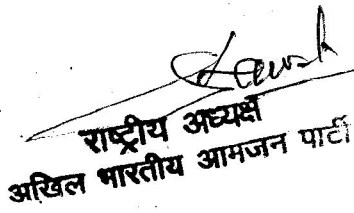 राष्ट्रीय अध्यक्ष
अखिल भारतीय आमजन पार्टी